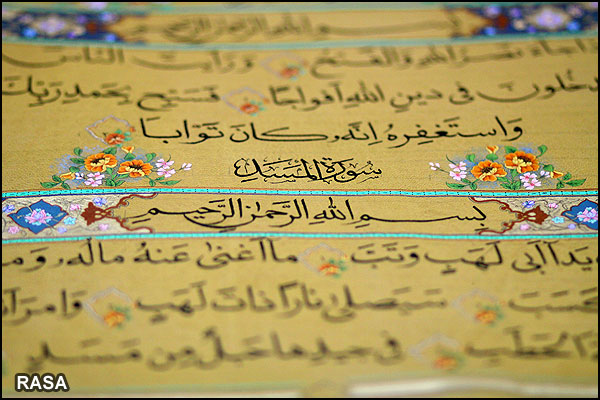 بِسْمِ اللهِ الرَّحْمٰنِ الرَّحيمِ
جاءَ نَصْرُ اللهِ وَالْفَتْحُ وَرَاَيْتَ النّاسَ
دْخُلُونَ فى دينِ اللهِ اَفْواجًا فَسَبِّحْ بِحَمْدِ رَبِّكَ
وَاسْتَغْفِرْهُ اِنَّهُ كانَ تَوّابًا
سُورَةُ الْمَسَدِ
بِسْمِ اللهِ الرَّحْمٰنِ الرَّحيمِ
يَدا اَبى لَهَبٍ وَتَبَّ ما اَغْنىٰ عَنْهُ مالُهُ وَم
كَسَبَ سَيَصْلىٰ نارًا ذاتَ لَهَبٍ وَامْرَاَ
الْحَطَبِ فى جيدِها حَبْلٌ مِنْ مَسَدٍ
RASA